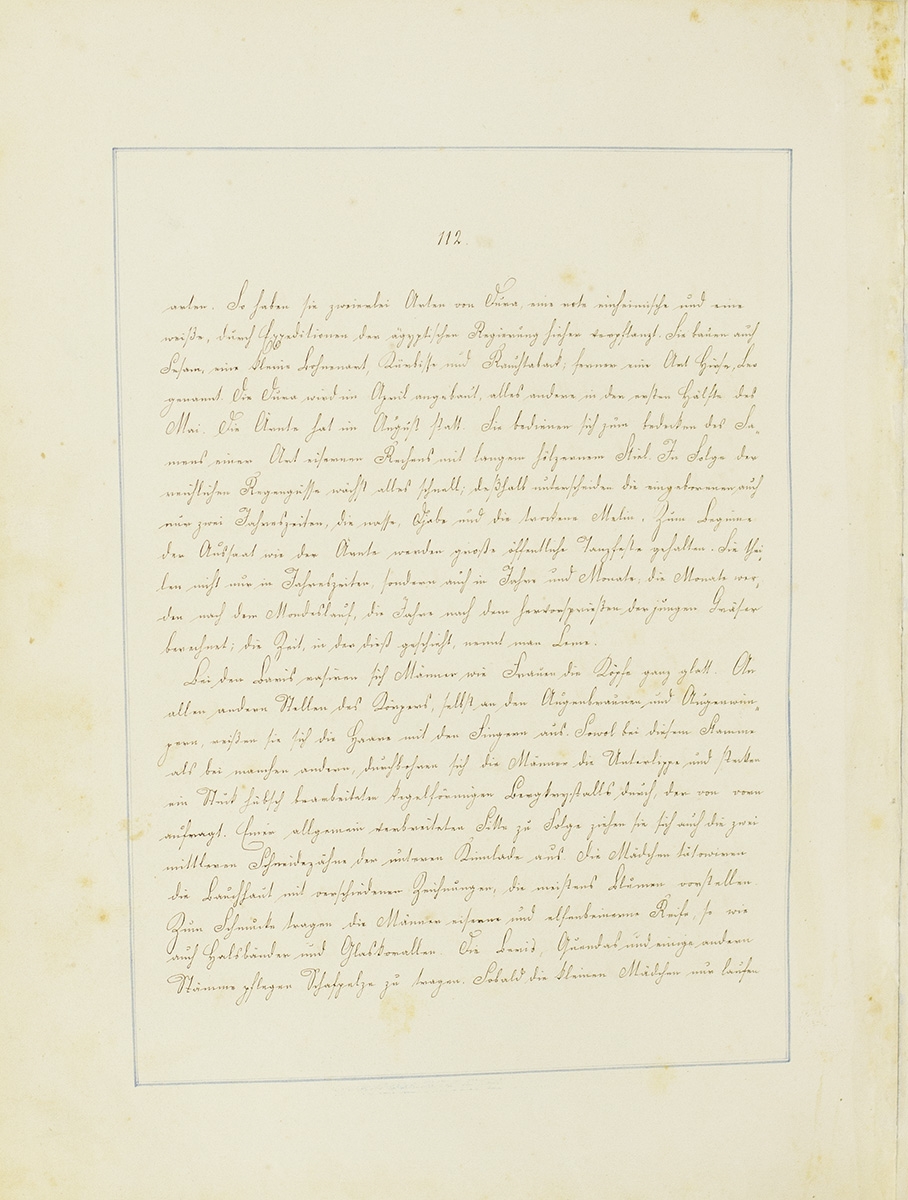 112.
arten. So haben sie zweierlei Arten von Dura, eine rote einheimische und eine
weiße, durch Expeditionen der ägyptischen Regierung hieher verpflanzt. Sie bauen auch
Sesam, eine kleine Bohnenart, Kürbisse und Rauchtabak; ferner eine Art Hirse,
genannt. Die Dura wird im April angebaut, alles andere in der ersten Hälfte des
Mai. Die Ärnte hat im August statt. Sie bedienen sich zum bedecken des Sa„
mens einer Art eisernen Rechens mit langem hölzernem Stiel. In Folge der
reichlichen Regengüsse wächst alles schnell; deßhalb unterscheiden die eingeborenen auch
nur zwei Jahreszeiten, die nasse, und die trockene Melin. Zum Beginne
der Aussaat wie der Ärnte werden große öffentliche Tanzfeste gehalten. Sie thei„
len nicht nur in Jahreszeiten, sondern auch in Jahre und Monate; die Monate wer„
den nach dem Mondeslauf, die Jahre nach dem hervorsprießen der jungen Gräser
berechnet; die Zeit, in der dieß geschieht, nennt man
Bei den Baris rasiren sich Männer wie Frauen die Köpfe ganz glatt. An
allen andern Stellen des Körpers, selbst an den Augenbraunen und Augenwim„
pern, reißen sie sich die Haare mit den Fingern aus. Sowol bei diesem Stamme
als bei manchen andern, durchbohren sich die Männer die Unterlippe und stecken
ein Stück hübsch bearbeiteten kegelförmigen Bergkrystalls durch, der von vorn
aufragt. Einer allgemein verbreiteten Sitte zu Folge ziehen sie sich auch die zwei
mittleren Schneidezähne der unteren Kinnlade aus. Die Mädchen tätowiren
die Bauchhaut mit verschiedenen Zeichnungen, die meistens Blumen vorstellen.
Zum Schmucke tragen die Männer eiserne und elfenbeinerne Reife, so wie
auch Halsbänder und Glaskorallen. Die und einige andern
Stämme pflegen Schafpelze zu tragen. Sobald die kleinen Mädchen nur laufen